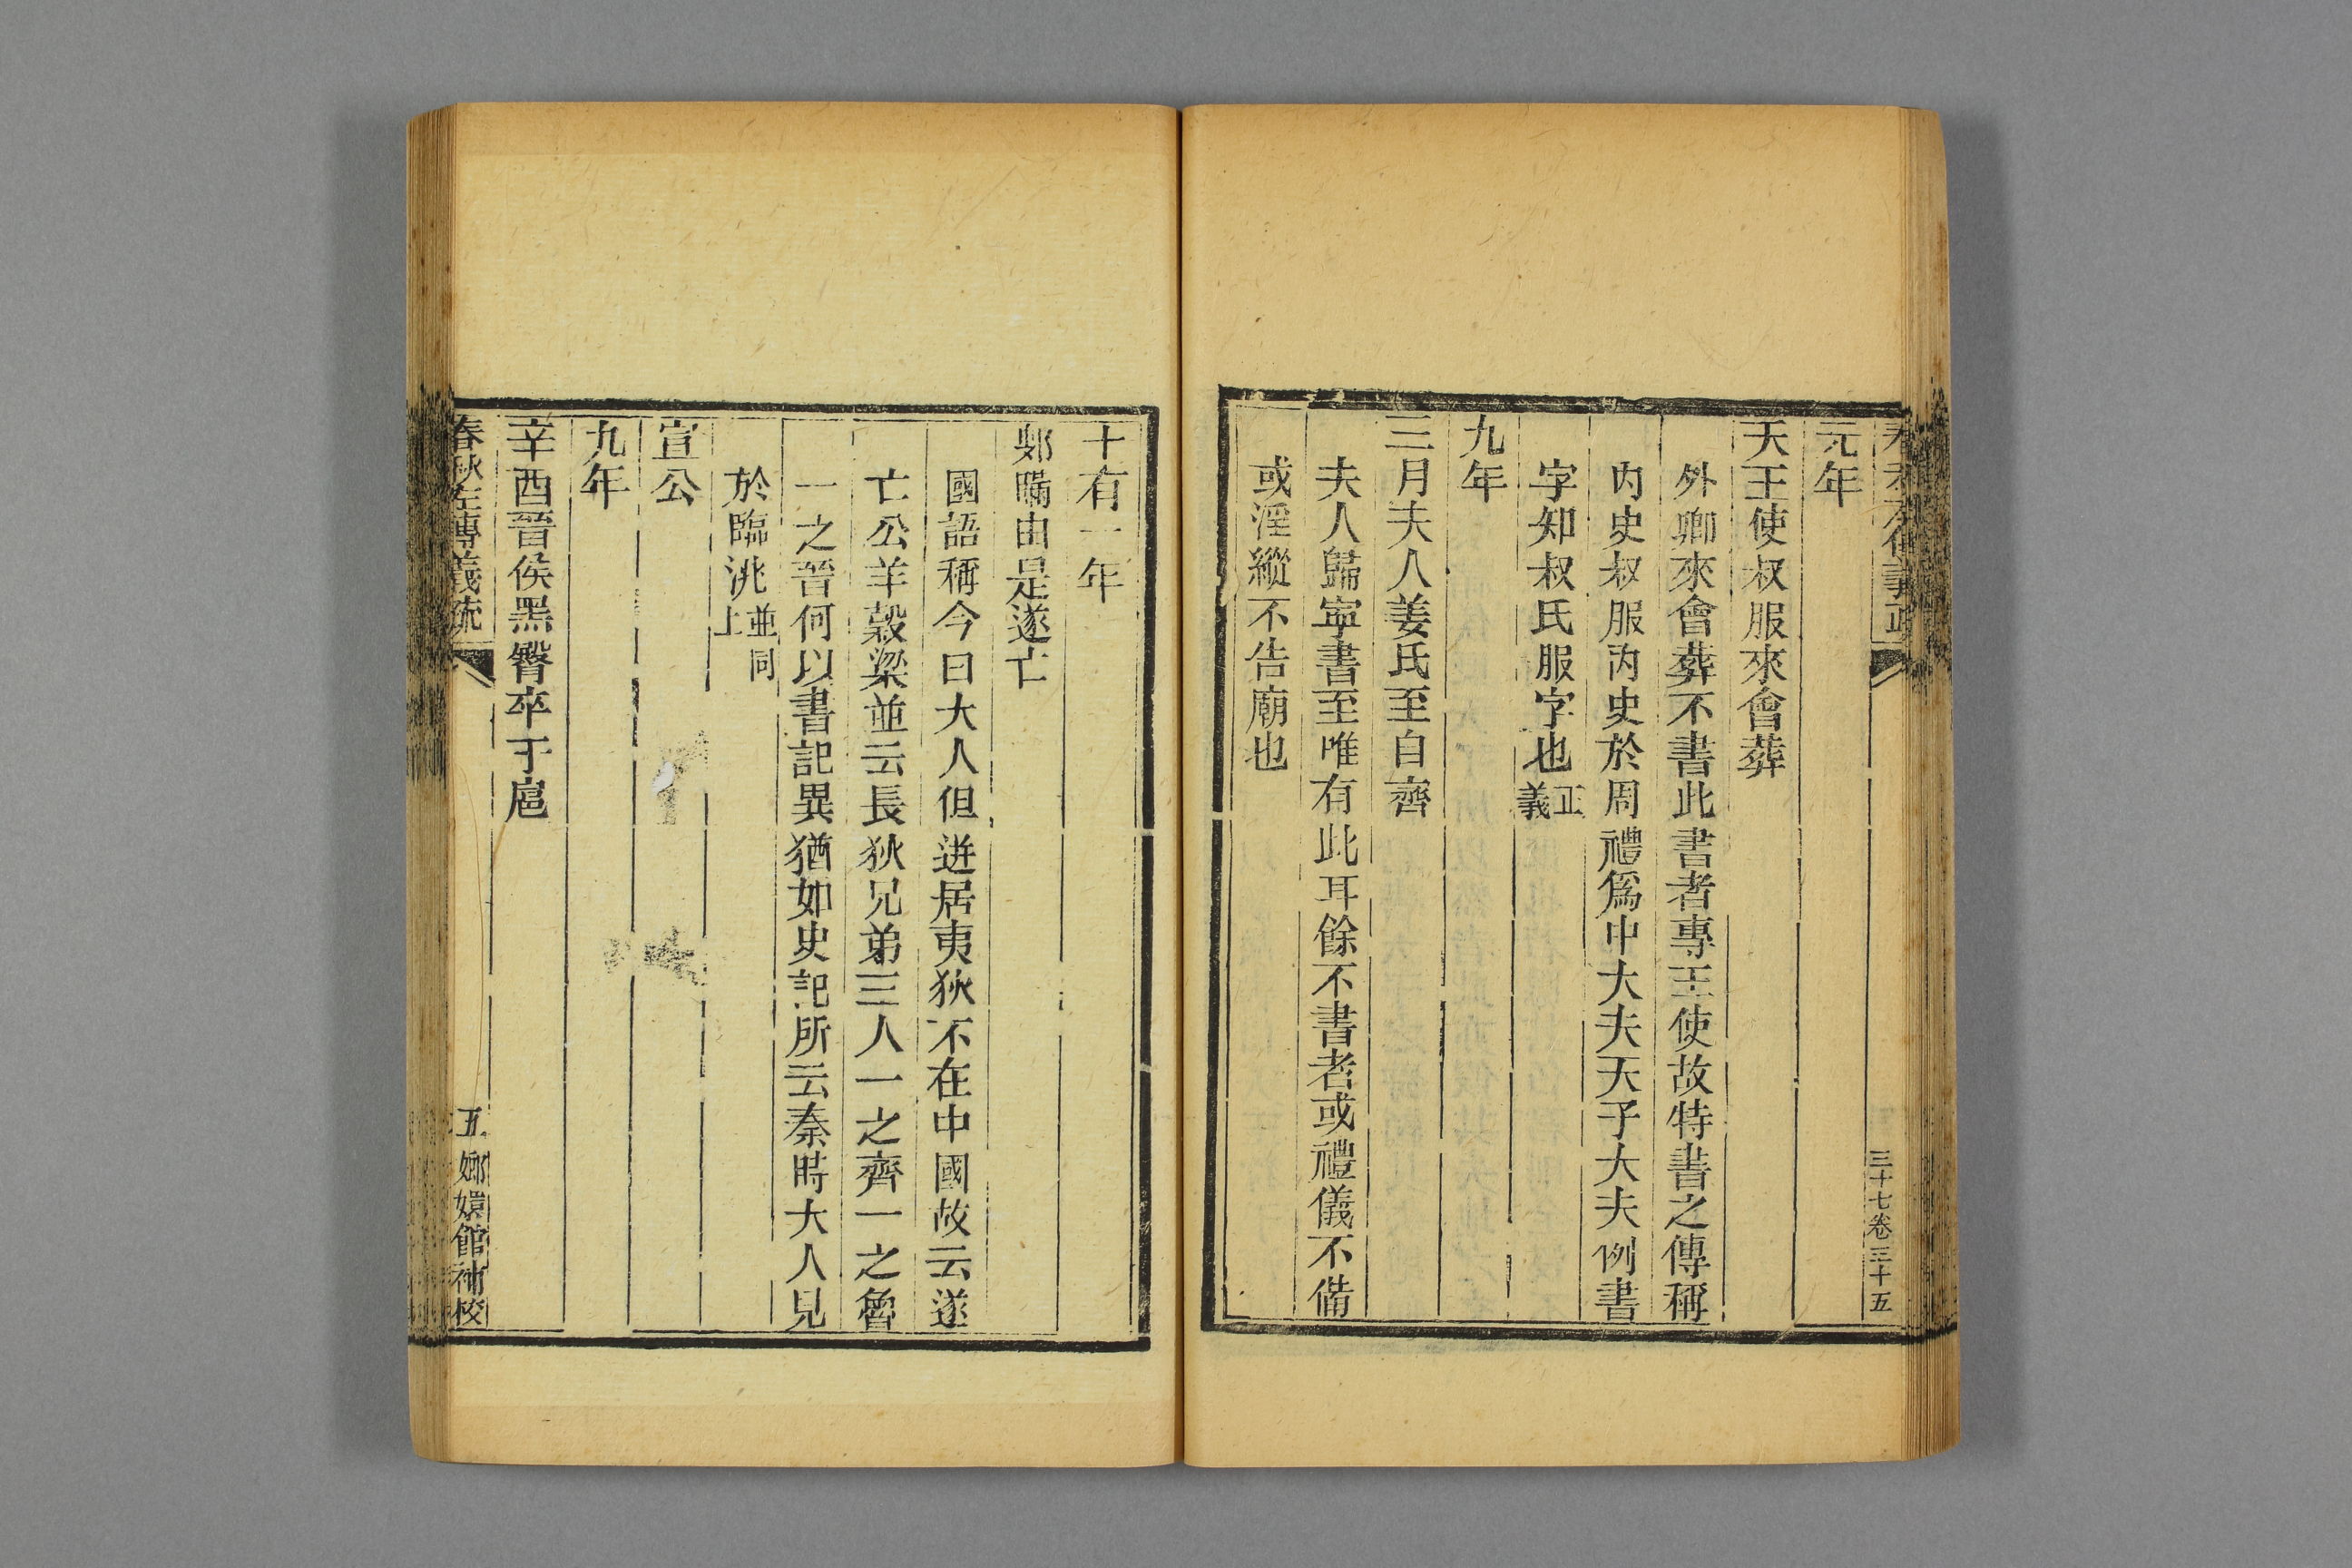 三十七卷三十五
元年
天王使叔服來會葬
外卿來會葬不書此書者專王使故特書之傳稱
内史叔服内史於周禮爲中大夫天子大夫例書
字知叔氏服字也正義
九年
三月夫人姜氏至自齊
夫人歸寧書至唯有此耳餘不書者或禮儀不備
或淫縱不告廟也
十有一年
鄋瞞由是遂亡
國語稱今曰大人但迸居夷狄不在中國故云遂
亡公羊穀梁並云長狄兄弟三人一之齊一之魯
一之晉何以書記異猶如史記所云秦時大人見
於臨洮並同上
宣公
九年
辛酉晉侯黑臀卒于扈
春秋左傳義疏 五 嫏嬛館補校